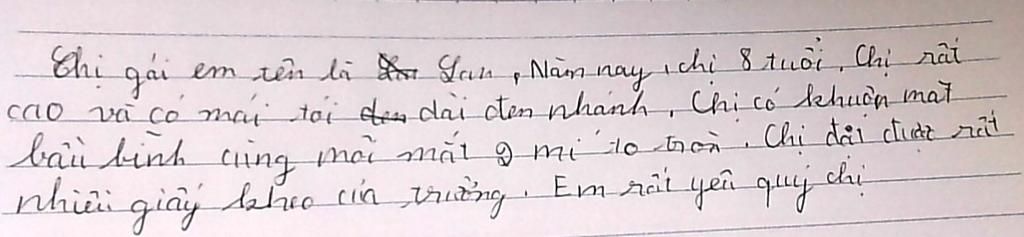 Chị gái em tên là Lan, Năm nay, chị 8 tuổi. Chị rất
cao và có mái tói dài đen nhánh. Chị có khuôn mặt
bầu bĩnh cùng mối mắt 2 mí to tròn. Chị đạt được rất
nhiều giấy kheo của trường. Em rất yêu quý chị